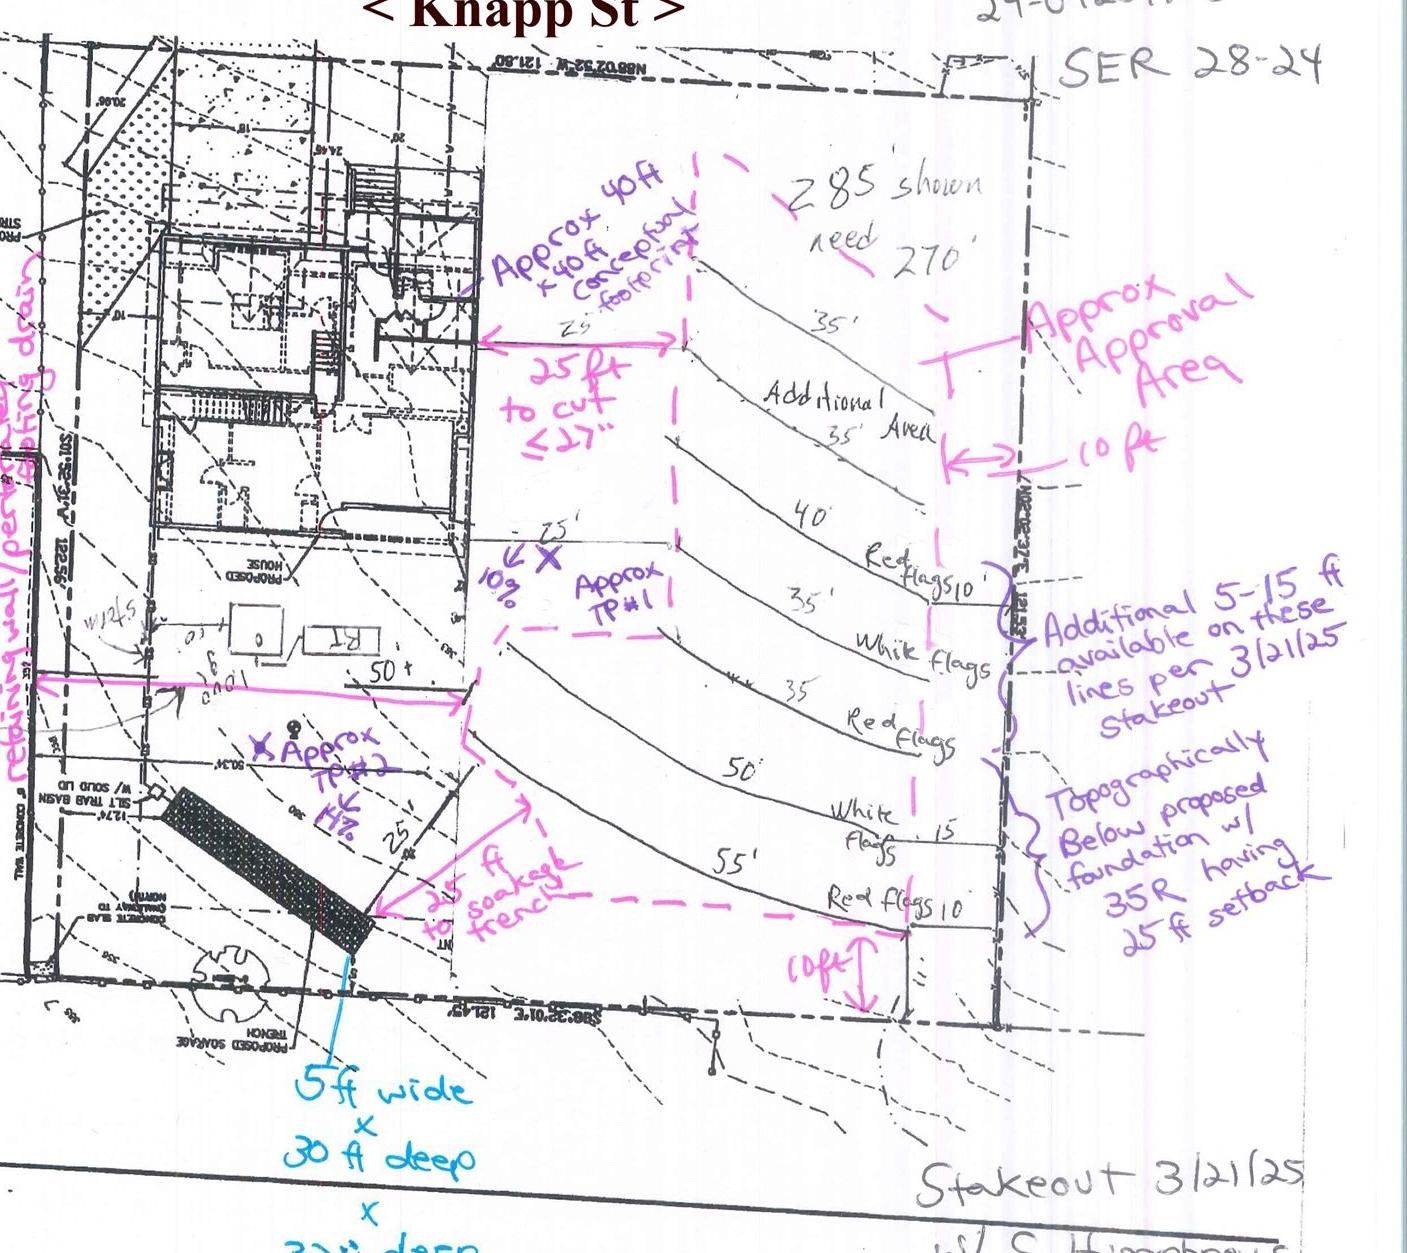 < Knapp St >
SER 28-24
N88°02'52"W 121.80'
20.66'
18'
20'
24.45'
10'
285' shown
need 270'
Approx 40ft
x 40ft
conceptual
footprint
25'
25 ft
to cut
≤27"
35'
Additional
Area
35'
Approx
Approval
Area
10 ft
40'
Red
flags 10'
25'
10%
X
Approx
TP#1
35'
White flags
35
Red
flags
50'
White
flags
15
55'
Red flags 10
Additional 5-15 ft
available on these
lines per 3/21/25
Stakeout
Topographically
Below proposed
foundation w/
35R having
25 ft setback
retaining wall/perimeter
footing drain
S01°52'31"W 122.56'
PROPOSED
HOUSE
RT
50+
X Approx
TP#2
14%
50.34'
SILT TRAP BASIN
W/ SOLID LID
12.74'
6" CONCRETE WALL
CONCRETE SLAB
(WALKWAY TO
NORTH)
25'
25 ft
to soakage
trench
10ft
N02°02'37"E 121.53'
S88°32'01"E 121.45'
PROPOSED SOAKAGE
TRENCH
5 ft wide
x
30 ft deep
x
Stakeout 3/21/25